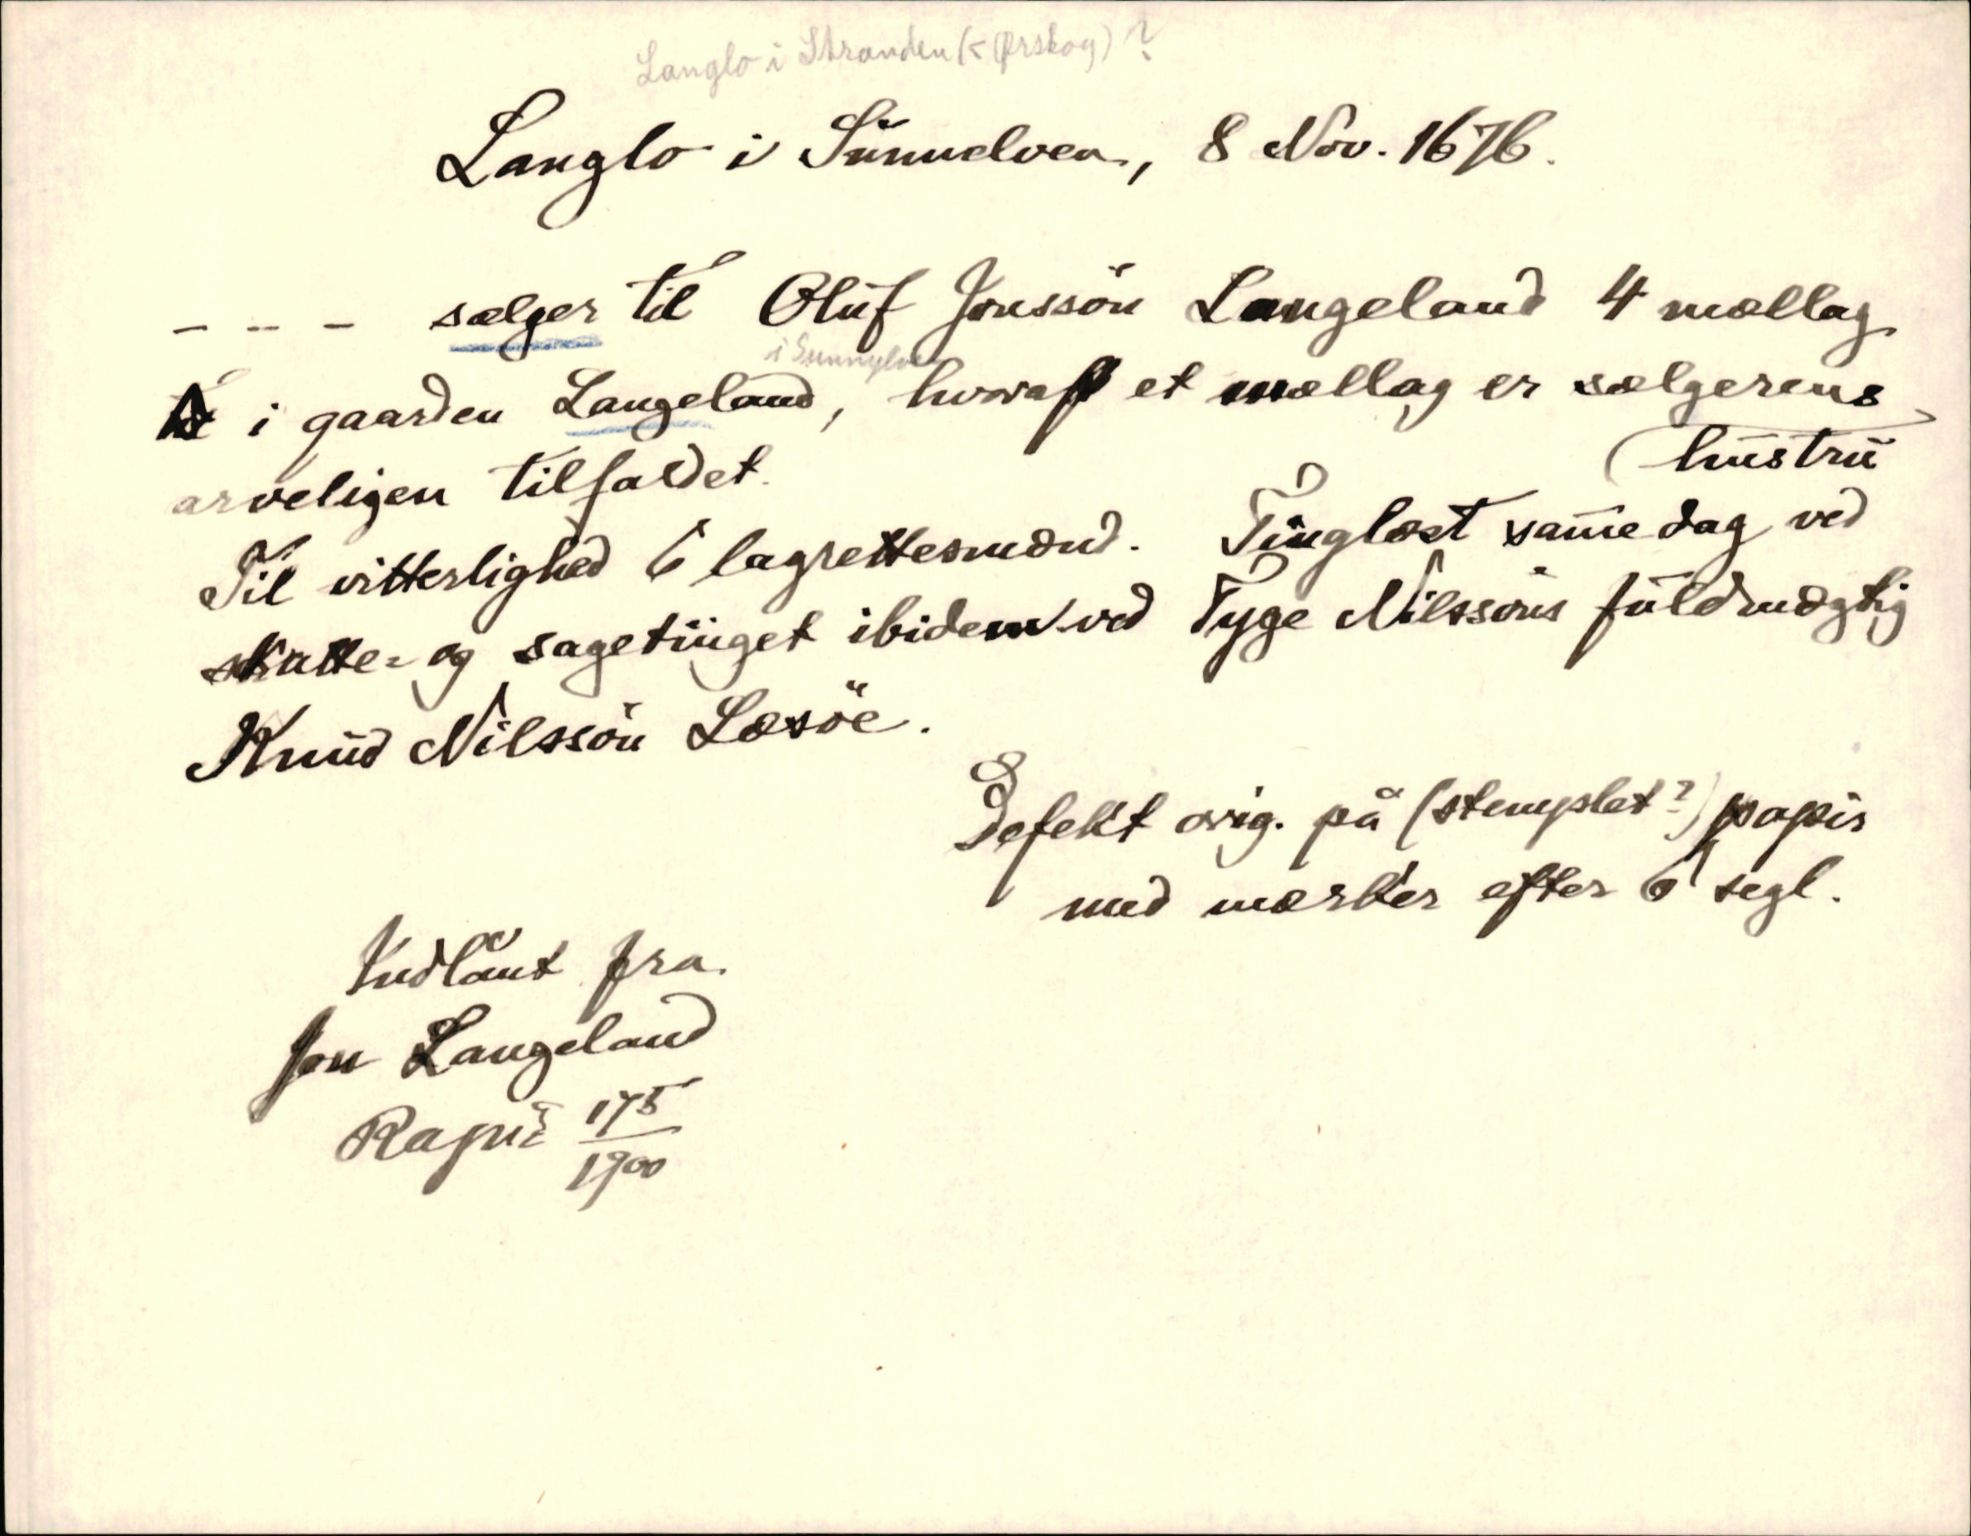 Langlo i Stranden (< Ørskog)?
Langlo i Sunnelven, 8 Nov. 1676.
--- sælger til Oluf Jonssön Langeland 4 mællag
i Sunnylven
i gaarden Langeland, hvoraf et mællag er sælgerens
(hustru
arveligen tilfaldet.
Til vitterlighed 6 lagrettesmænd. Tinglæst samme dag ved
skatte- og sagetinget ibidem ved Tyge Nilssöns fuldmægtig
Knud Nilssön Læsöe.
Defekt orig. på (stemplet?) papir
med mærker efter 6 segl.
Indlånt fra
Jon Langeland
17/5
1900